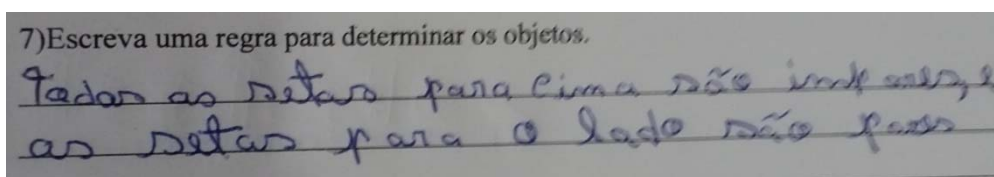 7)Escreva uma regra para determinar os objetos.
Todas as setas para cima são impares, e
as setas para o lado são pares